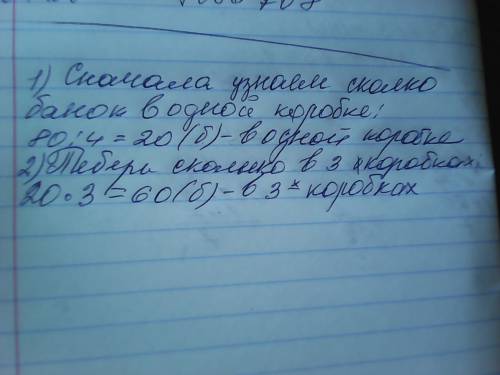 1) Сначала узнаем сколко
банок в одной коробке:
80:4=20(б)-в одной коробке
2) Теберь сколько в 3 х коробках,
20•3=60(б)-в 3х коробках